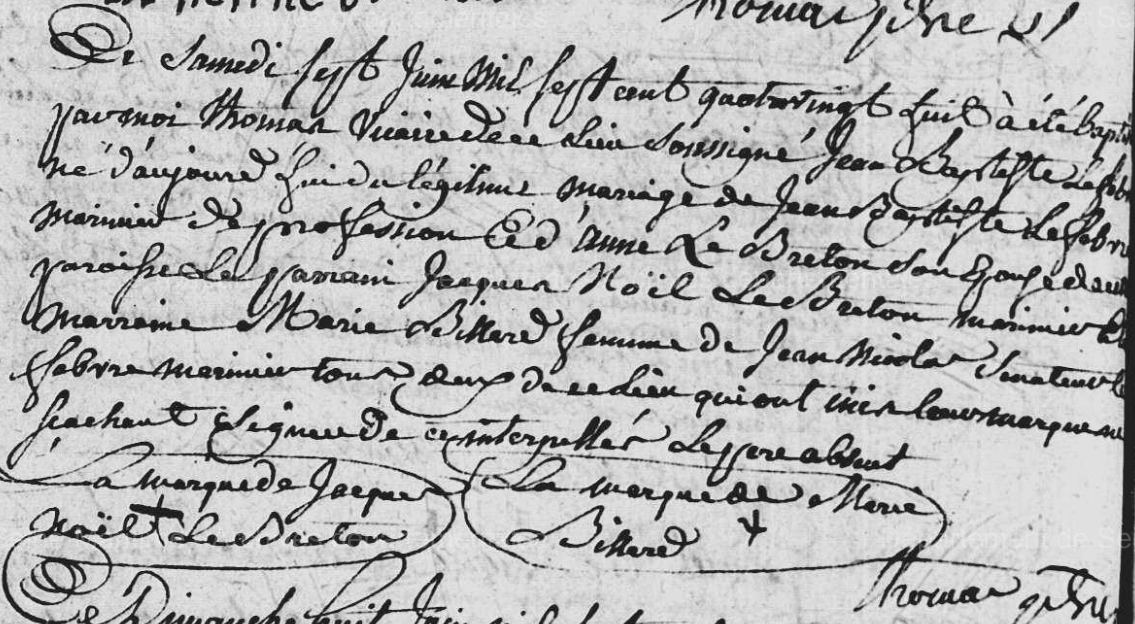 Thomas ptre
Le Samedi sept Juin Mil sept cent quatrevingt huit à été baptisé
par moi Thomas Vicaire de ce Lieu Soussigné Jean Baptiste Lefebvre
né d'aujourd'hui du légitime mariage de Jean Baptiste Lefebvre
marinier de profession Et d'anne Le Breton Son Epouse de cette
paroisse Le parrain Jacques Noël Le Breton marinier Et
marraine Marie Billard femme de Jean Nicolas Senateur Le
febvre marinier tous deux de ce Lieu qui ont mis leur marque ne
scachant Signer de ce interpellés Le pere absent
La marque de Jacques
Noël + Le Breton
La marque de Marie
Billard +
Thomas ptre
Le Dimanche huit Juin mil sept